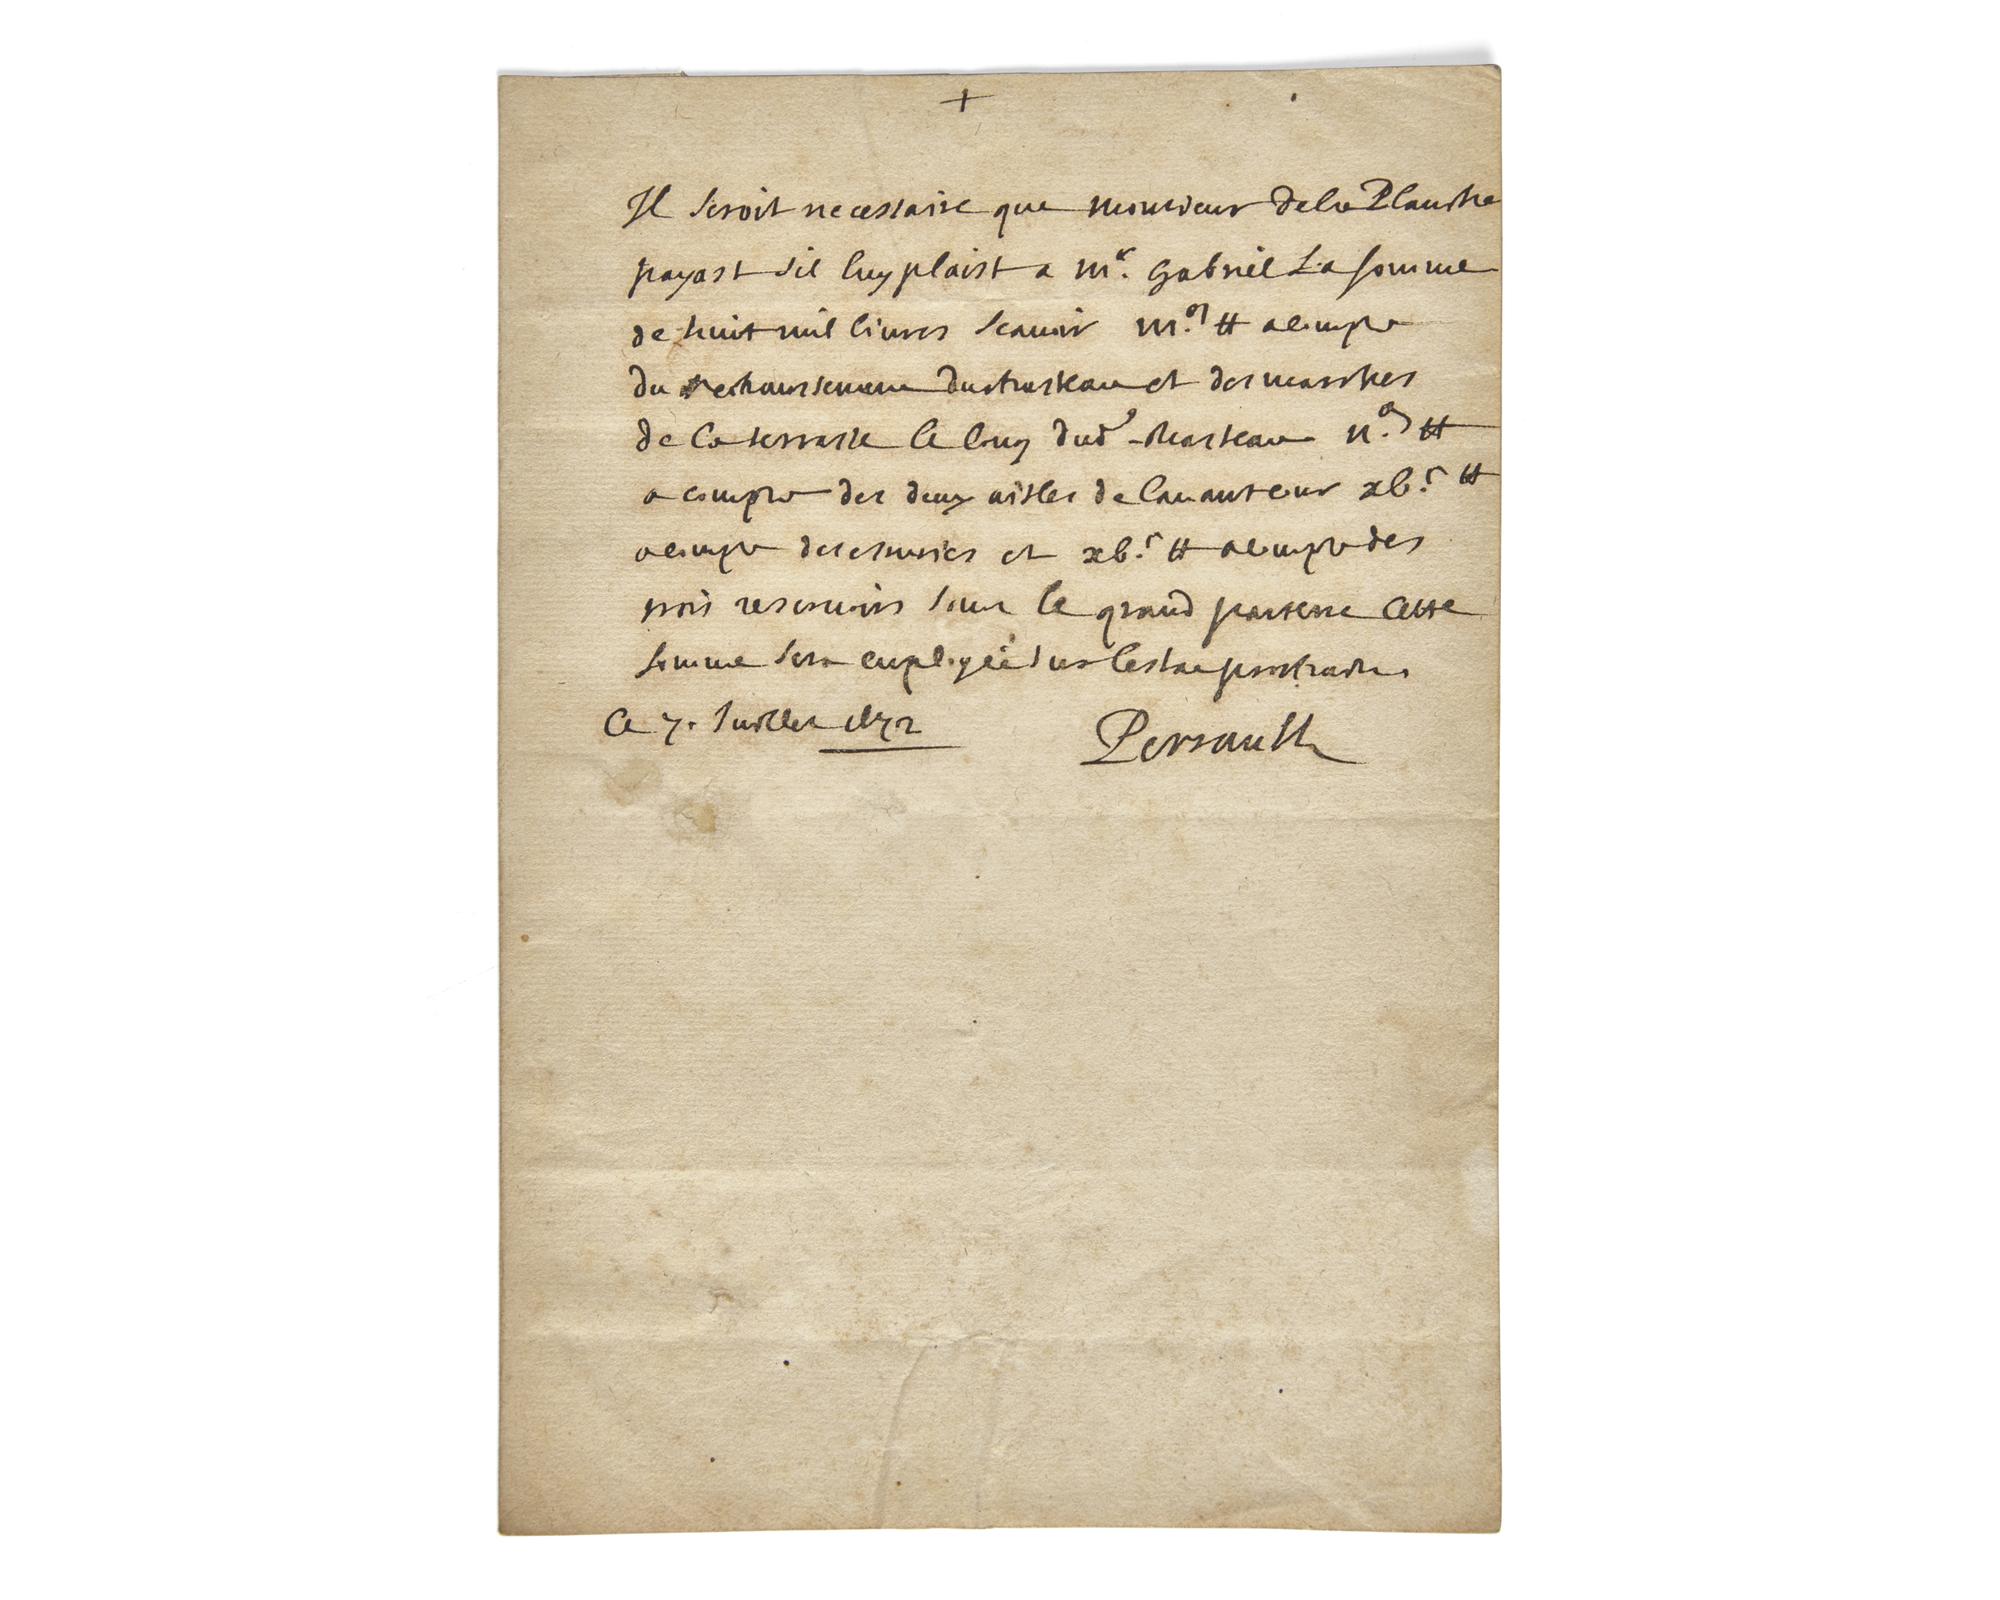 +
Il seroit necessaire que monsieur dela Planche
payast sil luy plaist a Mr. Gabriel La somme
de huit mil livres scavoir m. ₶ acompte
du rehaussement duchasteau et des marches
de la terrasse le long dud chasteau ₶
a compte des deux aisles de lavantcour ₶
acompte desescuries et ₶ acompte des
trois reservoirs sous le grand parterre Cette
somme sera employée sur lestat prochain.
Ce 7. Juillet 1672 Perrault